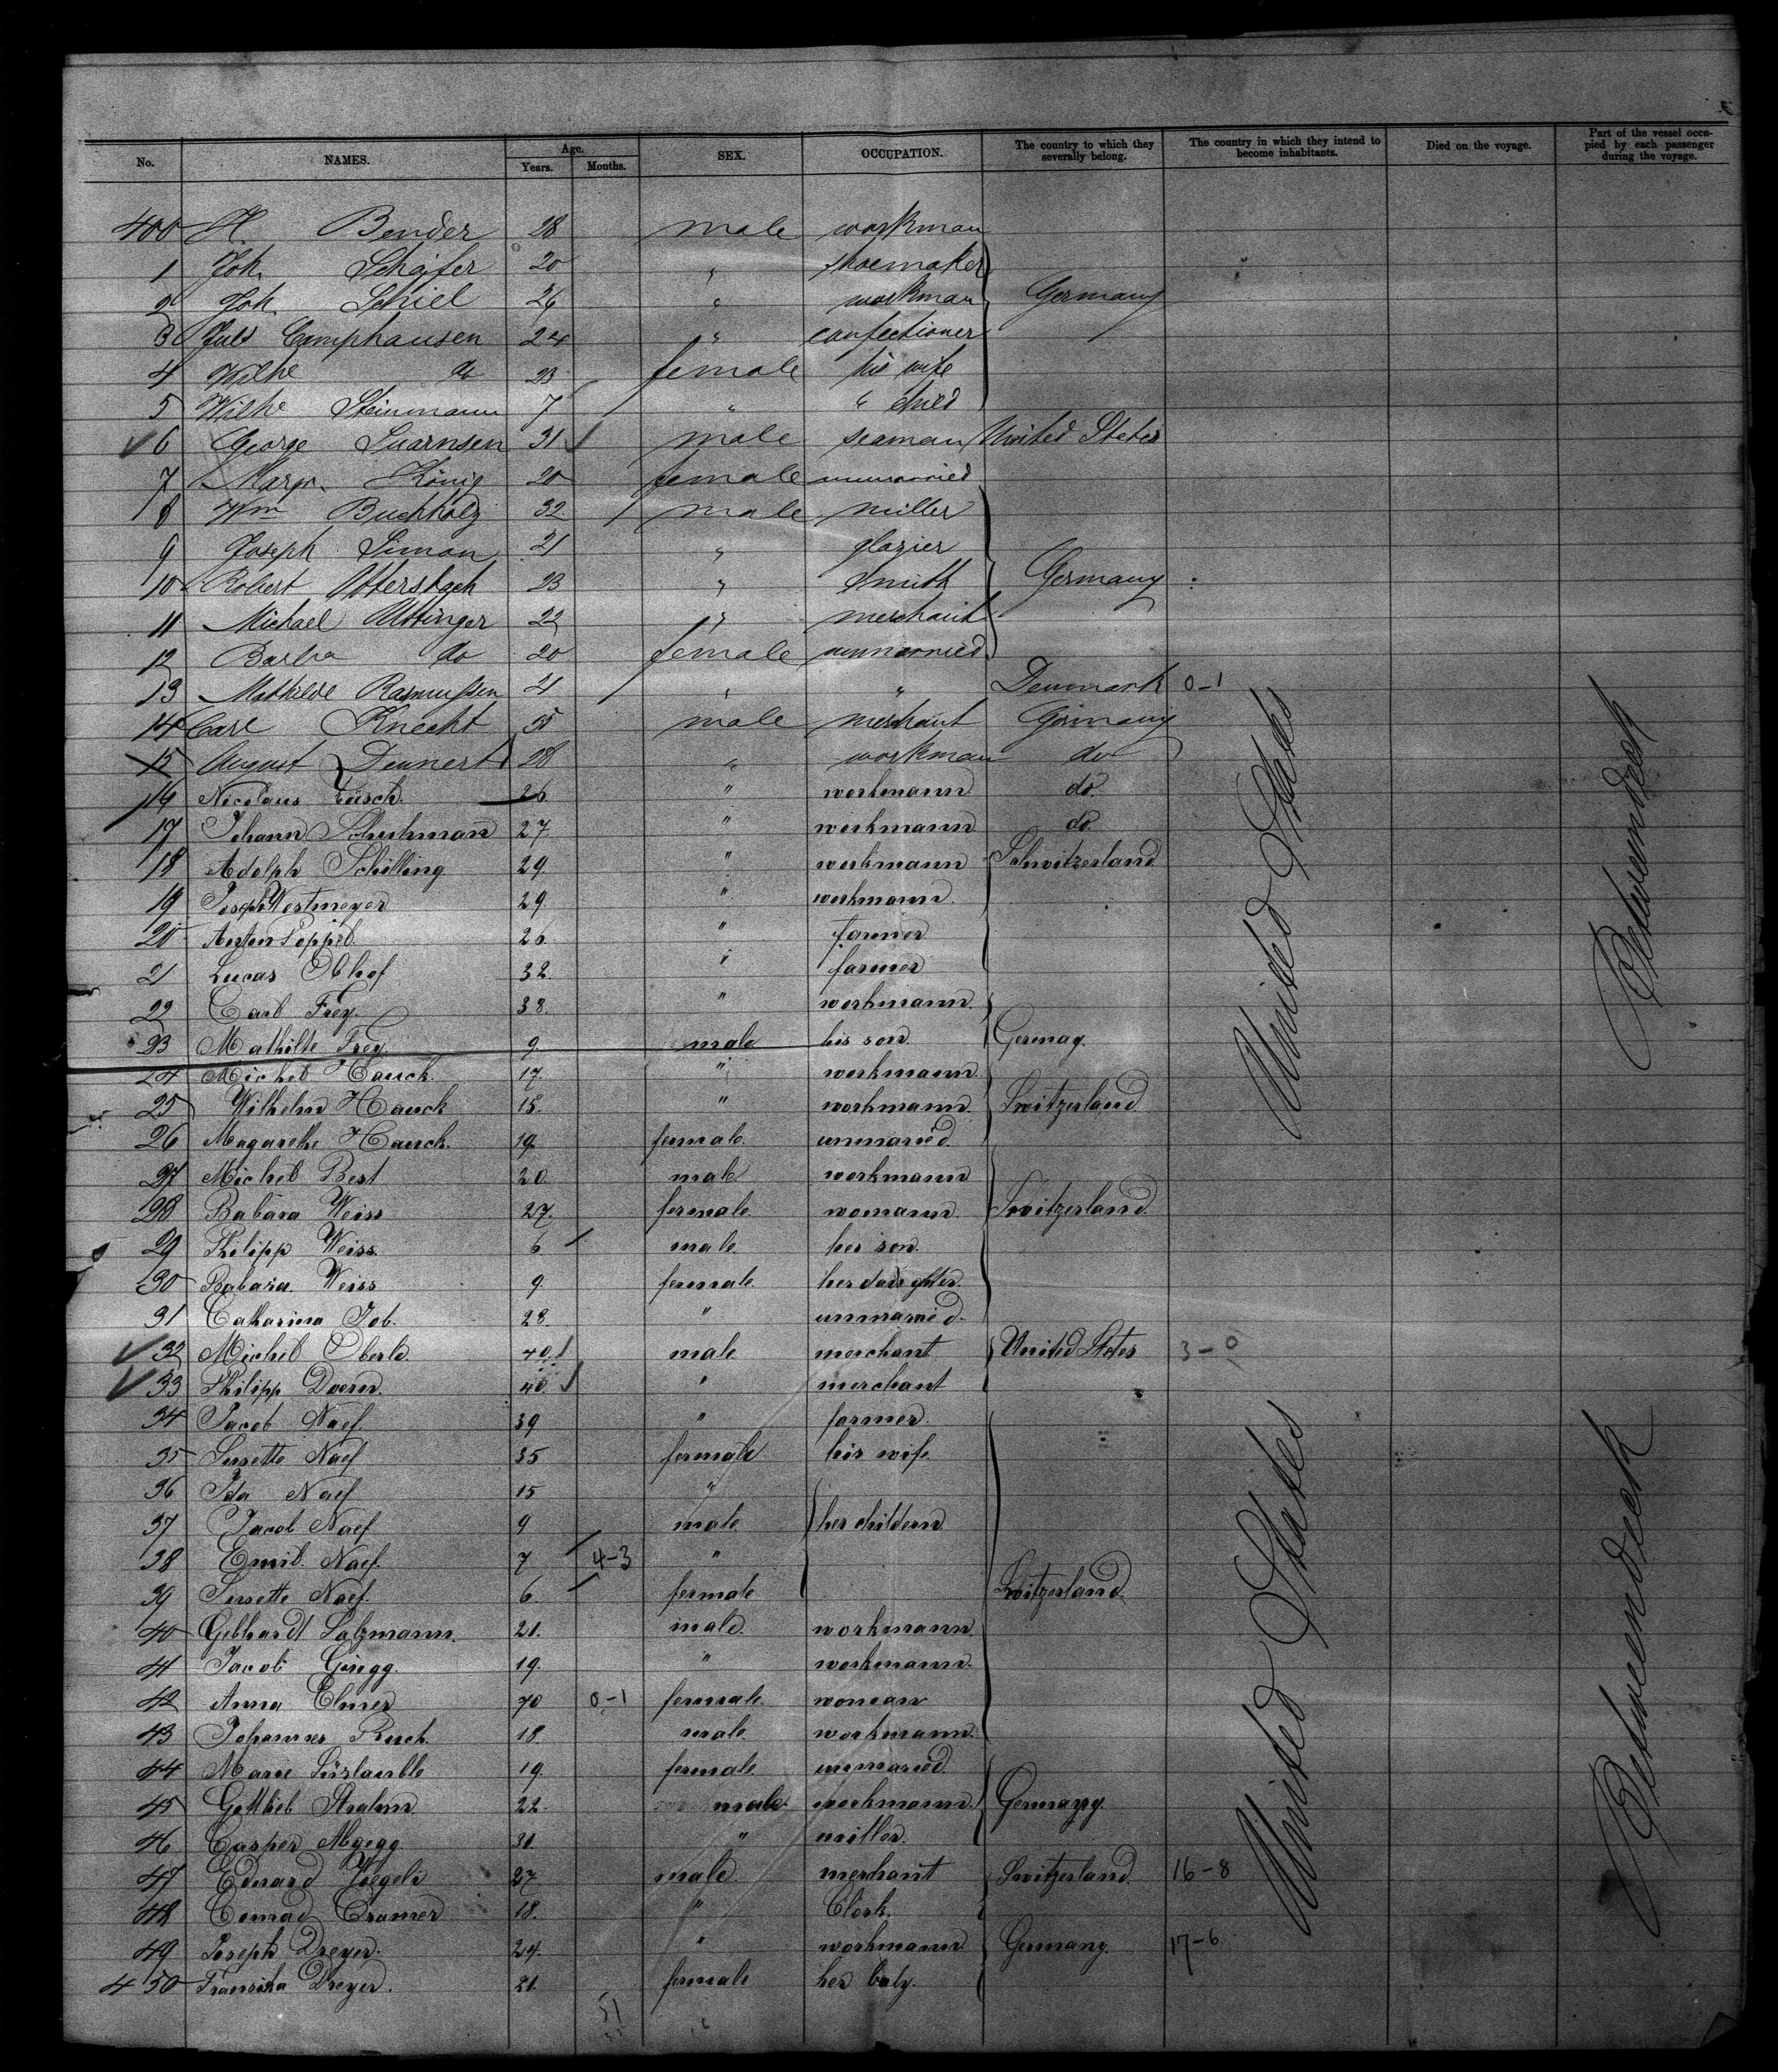 No. NAMES. Age. Years. Months. SEX. OCCUPATION. The country to which they severally belong. The country in which they intend to become inhabitants. Died on the voyage. Part of the vessel occupied by each passenger during the voyage.
400 H. Bender 28 male workman
1 Joh. Schäfer 20 " shoemaker
2 Joh. Schiel 26 " workman Germany
3 Camphausen 24 " confectioner
4 Wilhe do 23 female his wife
5 Wilhe Steinmann 7 " " child
6 George Suarnsen 31 male seaman United States
7 Margr. König 20 female unmarried
8 Wm Buchholz 32 male miller
9 Joseph Simon 21 " glazier
10 Robert Uttersbach 23 " smith Germany
11 Michael Uttinger 22 " merchant
12 Barba do 20 female unmarried
13 Mathilde Rasmussen 21 " " Denmark 0-1
14 Carl Knecht 35 male merchant Germany
15 August Deinert 28 " workman do
16 Nicolaus 26 " workmann do
17 Johann Schuhmann 27 " workmann do.
18 Adolph Schilling 29. " workmann Schwitzerland
19 Joseph Westmeyer 29. " workmann.
20 Anton Poppel 26. " farmer
21 Lucas Obhof 32. " farmer
22 Carl Frey. 38. " workmann.
23 Mathilte Frey. 9. male his son Germay.
24 Michel Hauck. 17. " workmann.
25 Wilhelm Hauck 15. " workmann. Switzerland
26 Magarethe Hauck. 19. female. unmaried.
27 Michel Best 20. male workmann
28 Babara Weiss 27. female. womann. Switzerland
29 Philipp Weiss. 6 male her son.
30 Babara Weiss 9. female. her daughter.
31 Catharina Job. 28. " unmaried.
32 Michel Oberle. 40. male merchant United States 3-0
33 Philipp Doern. 40. " merchant
34 Jacob Naef. 39 " farmer.
35 Susette Naef 35 female his wife.
36 Ida Naef 15 "
37 Jacob Naef 9 male her childern
38 Emil Naef. 7 4-3 "
39 Susette Naef. 6. female Switzerland.
40 Gebhardt Salzmann. 21. male. workmann.
41 Jacob Giregg. 19. " workmann.
42 Anna Elmer 70 0-1 female. woman
43 Johannes Ruch 18. male. workmann.
44 Marie 19. female. unmaried
45 Gottlieb Strahm 22. male. workmann. Germany.
46 Casper Mgegg 31. " miller.
47 Eduard Voegeli 27 male. merchant Switzerland. 16-8
48 Conrad Cramer 18. " Clerk.
49 Joseph Dreyer. 24. " workmann Germany. 17-6
450 Fransiska Dreyer. 21. female her baly.
51
United States
Betweendeck
United States
Betweendeck